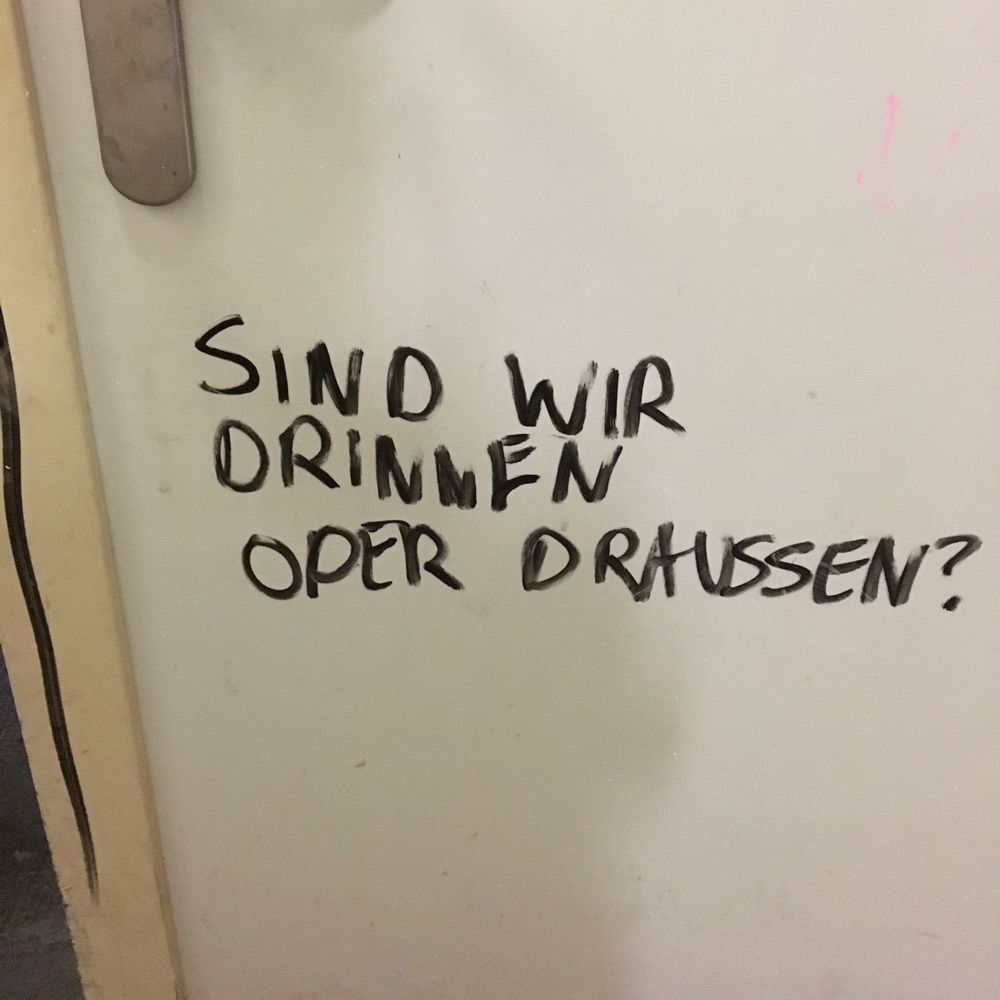 SIND WIR
DRINNEN
ODER DRAUSSEN?